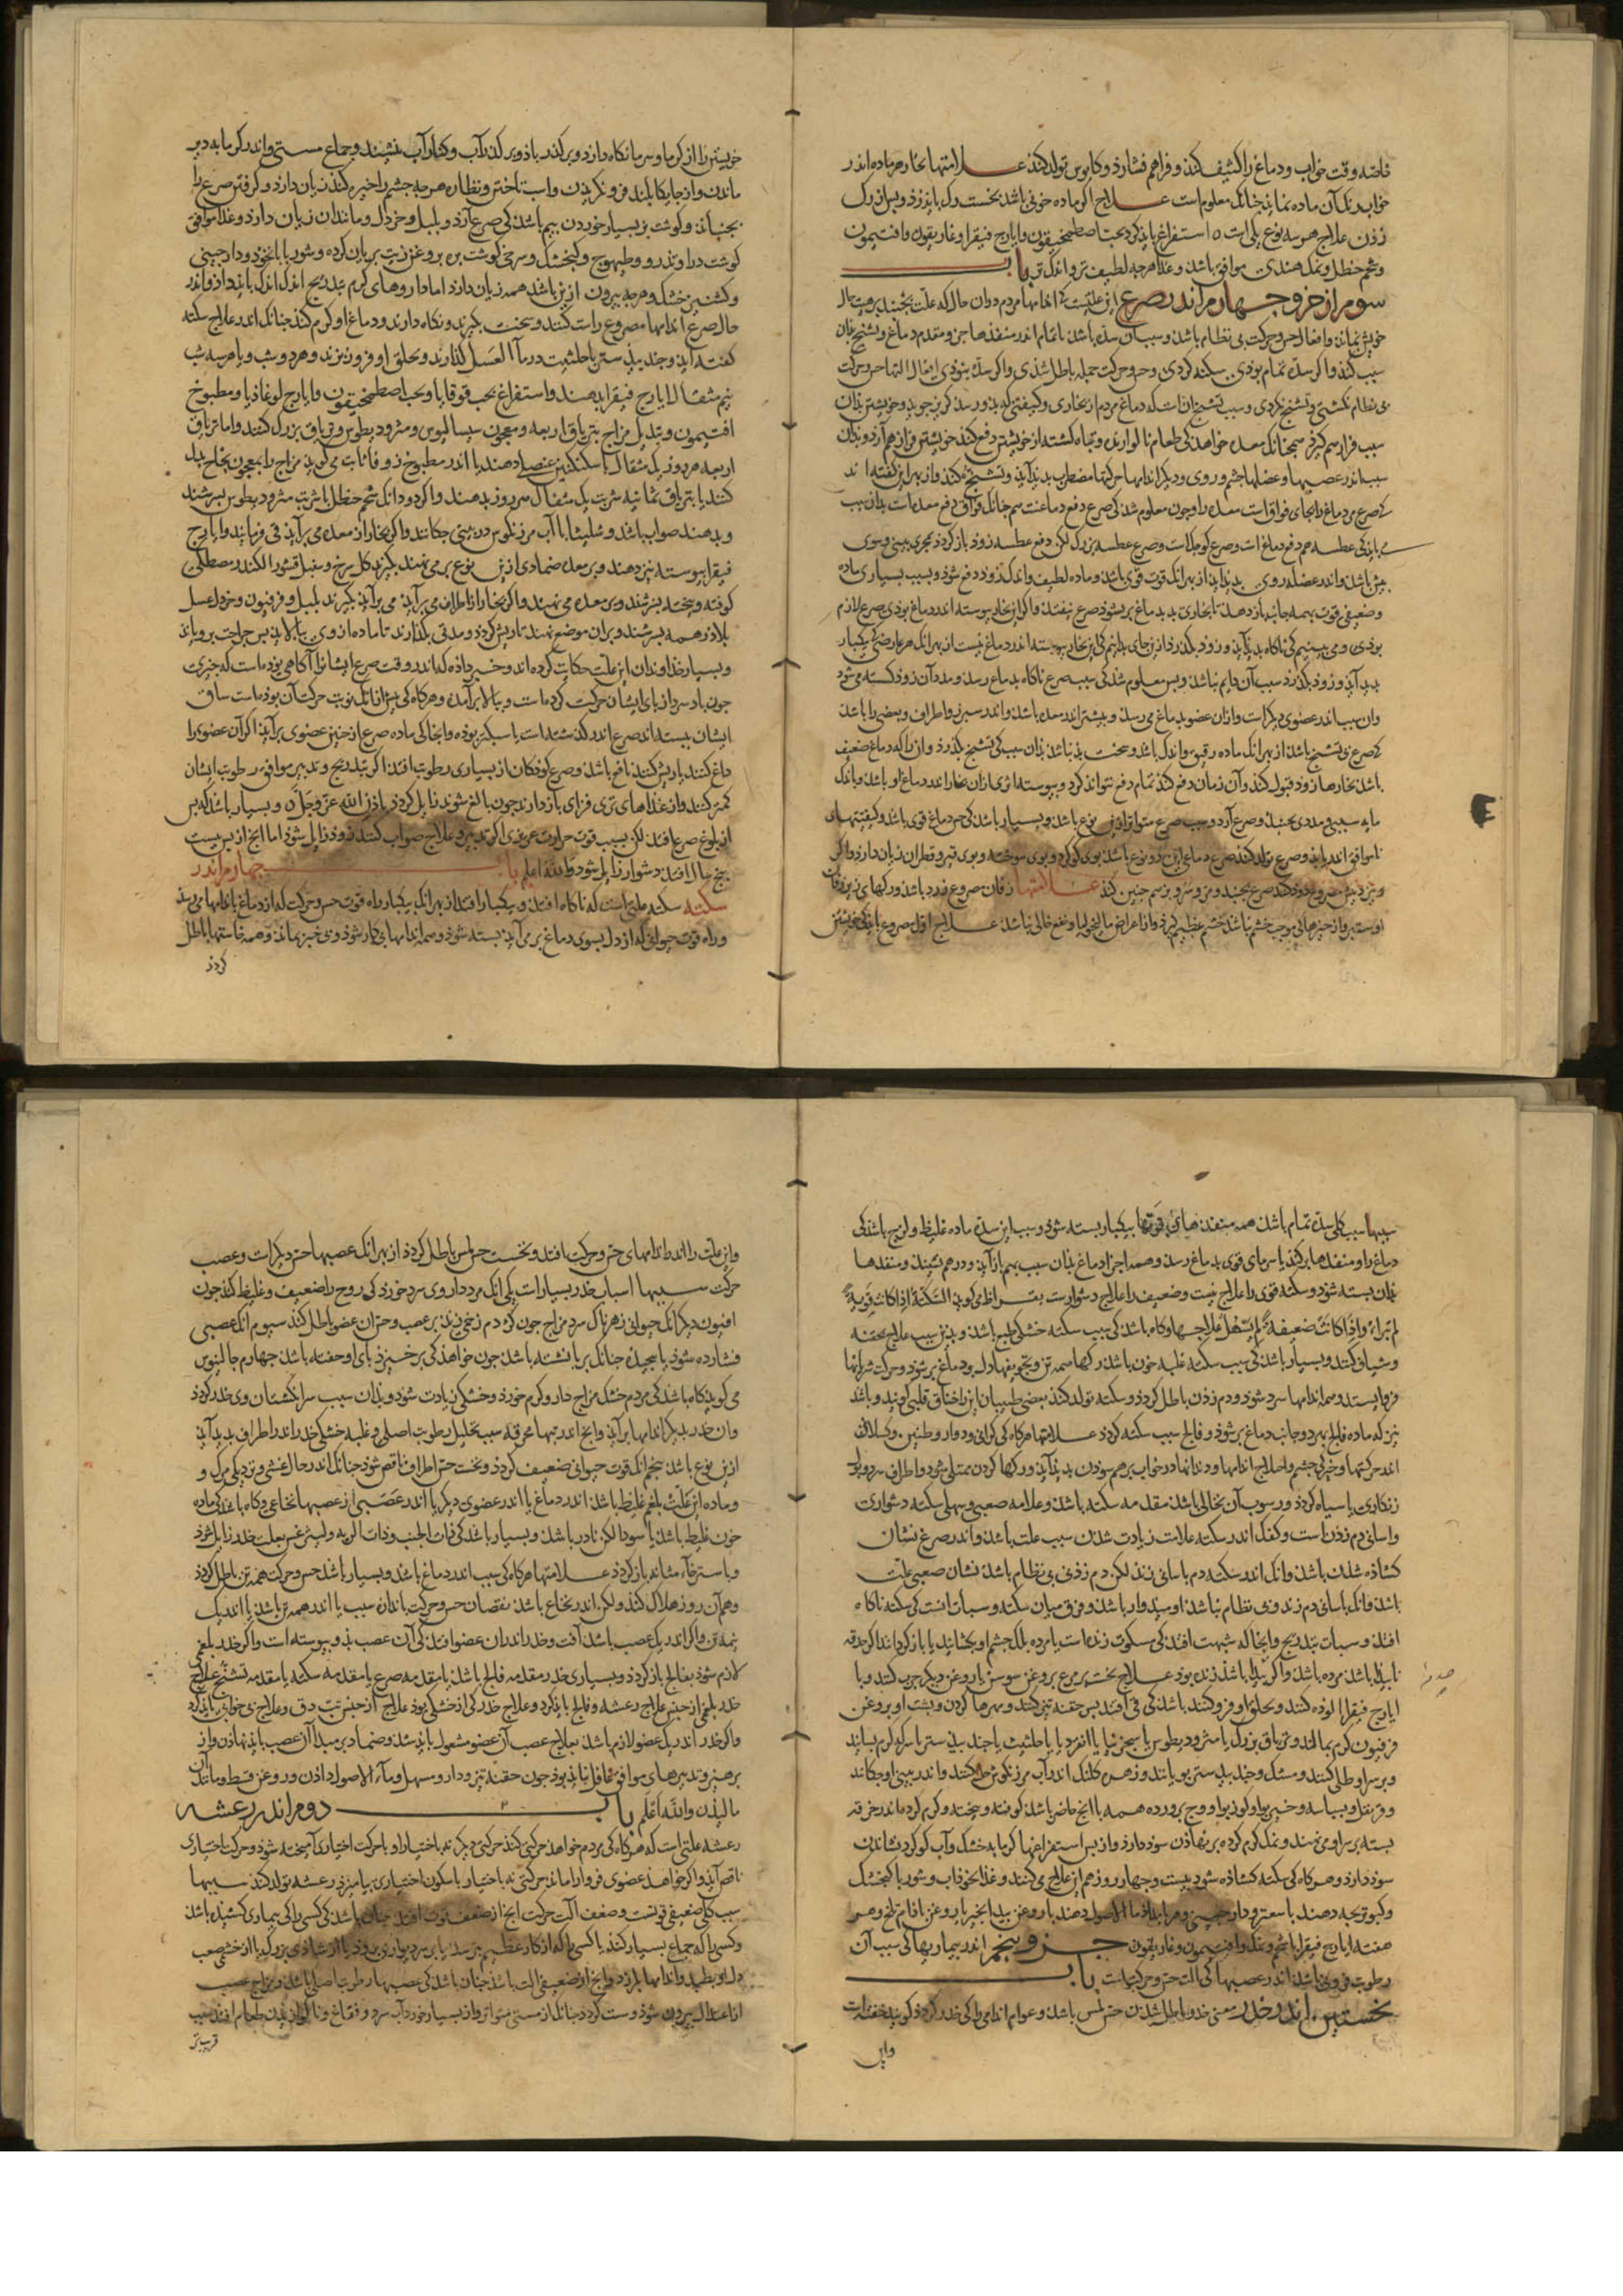 خاصّه وقت خواب و دماغ را کثیف کند و فراهم فشارد و کابوس تولد کند علامتها بخار هر ماده اندر
خواب رنک آن ماده نماید جنانک معلوم است علاج اکر ماده خونی باشد نخست رک باید زد و بس از رک
زدن علاج هر سه نوع یکی است استفراغ باید کرد بحب اصطمخیقون و ایارج فیقرا و غاریقون و افتیمون
و شحم حنظل و نمک هندی موافق باشد و غذا هرجه لطیف تر و اندک تر باب
سوم از جزو جهارم اندر صرع این علتیست که اندامها مردم در آن حال که علت بجنبد بر هیئت حال
خویش نماند و افعال حس و حرکت بی نظام باشد و سبب آن سدّه باشد ناتمام اندر منفذها جزو مقدم دماغ و تشنج بدان
سبب کند و اکر سدّه تمام بودی سکته کردی و حس و حرکت جمله باطل شدی و اکر سدّه نبودی افعال التها حس و حرکت
بی نظام نکشتی و تشنج نکردی و سبب تشنج ان است که دماغ مردم از بخاری و کیفیتی که بدو رسد کریز جوید و خویشتن بدان
سبب فراز هم کیرد همجنانک معده خواهد کی طعام ناکوارنده و تباه کشته از خویشتن دفع کند خویشتن فراز هم آرد و بدان
سبب اندر عصبها و عضلها جشم و روی و دیکر اندامها حرکتها مضطرب بدید آید و تشنج کند و از بهر این کفته اند
که صرع مر دماغ را بجای فواق است معده را و جون معلوم شد کی صرع دفع دماغست همجنانک فواق دفع معده است بدان سبب
باید کی عطسه هم دفع دماغ است و صرع کوجک است و صرع عطسه بزرک لکن دفع عطسه زود باز کردد مجری بینی و سوی
بیش باشد و اندر عضله روی بدید اید از بهر انک قوت قوی باشد و ماده لطیف و اندک زود دفع شود و بسبب بسیاری ماده
و ضعیفی قوت بهمه جانب باز دهد تا بخاری بد بدماغ بر نشود صرع نیفتد و اکر این بخار پیوسته اندر دماغ بودی صرع لازم
بودی و می بینیم کی ناکاه بدید آید و زود بکذرد از این جای بدانیم کی این بخار پیوسته اندر دماغ نیست از بهر انک هر عارضی که بیکبار
بدید آید و زود بکذرد سبب آن دایم نباشد و بس معلوم شد کی سبب صرع ناکاه بدماغ رسد و مدد آن زود کسسته می شود
وان سبب اندر عضوی دیکر است و ازان عضو بدماغ می رسد و بیشتر اندر معده باشد و اندر سپرز و اطراف و بعضی را باشد
که صرع بی تشنج باشد از بهر انک ماده رقیق و اندک باشد و سخت بد نباشد بدان سبب کی تشنج بکذرد و ان را که دماغ ضعیف
باشد بخارها زود قبول کند و آن زمان دفع کند تمام دفع نتواند کرد و بیوسته اثری از ان بخار اندر دماغ او باشد و باندک
مایه سببی و مددی بجنبد و صرع آرد و سبب صرع متواتر ازین نوع باشد و بسیار باشد کی حس دماغ قوی باشد و کیفیتهای
ناموافق اندر یابد و صرع تولد کند صرع دماغی این دو نوع باشد بوی کوکرد و بوی سوخته و بوی قیر و قطران زیان دارد و اکر
علامتها زفان مصروع زرد باشد و رکهای زیر زفان
او ستبر و از جیزهائی موجب خشم نباشد خشم عظیم کیرد و از اعراض مالیخولیا و نفخ خالی نباشد علاج اول مصروع باید کی خویشتن
خویشتن را از کرما و سرما نکاه دارد و بر کذر باد و بر کذر آب و کنار آب ننشیند و جماع و مستی و اندر کرمابه دیر
ماندن و از جایکاه بلند فرو نکریدن و اسب تاختن و نظاره هرجه جشم را خیره کند زیان دارد و کرفتن صرع را
بجنباند و کوشت بز بسیار خوردن بیم باشد کی صرع آرد و بلبل و خردل و مانند ان زیان دارد و غذا موافق
کوشت دراج و تذرو و طیهوج و کنجشک و سرخی کوشت بره بروغن زیت بریان کرده و شوربا بانخود و دارجینی
و کشنیز خشک و هرجه بیرون ازین باشد همه زیان دارد اما داروهای کرم بتدریج اندک اندک باید داد و اندر
حال صرع اندامها مصروع راست کنند و سخت بکیرند و نکاه دارند و دماغ او کرم کنند جنانک اندر علاج سکته
کفته آید و جند بیدستر یا حلتیت در ماء العسل کذارند و بحلق او فرو ریزند و هر دو شب و یا هر سه شب
نیم مثقال ایارج فیقرا بدهند و استفراغ بحب قوقایا و بحب اصطمخیقون و ایارج لوغاذیا و مطبوخ
افتیمون و تبدیل مزاج بتریاق اربعه و معجون سیسالیوس و مثرودیطوس و تریاق بزرک کنند و اما تریاق
اربعه هر روز یک مثقال با سکنکبین عنصلی دهند یا اندر مطبوخ زوفا ثابت می کوید مزاج را بمعجون
کنند یا بتریاق ثمانیه شربت یک مثقال هر روز بدهند و اکر دو دانک شحم حنظل با شربت مثرودیطوس بسرشند
و بدهند صواب باشد و شلیثا با آب مرزنکوش در بینی جکانند و اکر بخار از معده می برآید قی فرمایند و ایارج
فیقرا بیوسته نیز دهند و بر معده ضمادی ازین نوع بر می نهند بکیرند کل سرخ و سنبل قشور الکندر مصطکی
کوفته و بیخته بسرشند و بر معده می نهند و اکر بخار از اطراف می برآید می برآید بکیرند بلبل و فرفیون و خردل و عسل
بلاذر همه بسرشند و بران موضع نهند تا ریش کردد و مدتی بکذارند تا ماده از وی بپالاید بس جراحت برویاند
و بسیار خداوندان این علت حکایت کرده اند و خبر داده که اندر وقت صرع ایشان را آکاهی بوده است که جیزی
جون باد سرد از بای ایشان حرکت کرده است و ببالا برآمده و هرکاه کی بیش از انک نوبت حرکت آن بوده است ساق
ایشان ببسته اند صرع اندر کذشته است یا سبکتر بوده و انجا کی ماده صرع از جنین عضوی برآید اکر آن عضوی را
داغ کنند یا ریش کنند نافع باشد و صرع کودکان از بسیاری رطوبت افتد اکر بتدریج و تدبیر موافق رطوبت ایشان
کمتر کنند و از غذاهای تری فزای باز دارند جون بالغ شوند زایل کردد باذن الله عز و جل و بسیار باشد که بس
از بلوغ صرع افتد لکن بسبب قوت حرارت غریزی اکر تدبیر و علاج صواب کنند زود زایل شود اما انج از بس بیست
بنج سال افتد دشوار زایل شود والله اعلم باب جهارم اندر
سکته سکته علتی است که ناکاه افتد و بیکبار افتد از بهر انک بیکبار راه قوت حس و حرکت که از دماغ باندامها می رسد
و راه قوت حیوانی که از دل بسوی دماغ بر می آید بسته شود و همه اندامها بی کار شود و بی خبر بماند و همه خاستها باطل
کردد
سببها سبب کلی سدّه تمام باشد همه منفذهای قوتها بیکبار بسته شود و سبب این سدّه ماده غلیظ و لزج باشد کی
دماغ را و منفذها بر کند یا سرمای قوی بدماغ رسد و همه اجزا دماغ بدان سبب بهم باز آید و در هم نشیند و منفذها
بدان بسته شود و سکته قوی را علاج نیست و ضعیف را علاج دشوارست بقراط می کوید السکتة اذا کانت قویة
لم تبرأ و اذا کانت ضعیفة لم یسهل علاجها و کاه باشد کی سبب سکته خشکی طبع باشد و بدین سبب علاج بحقنه
و شیاف کنند و بسیار باشد کی سبب سکته غلبه خون باشد رکها همه تن و تجویفها دل و دماغ بر شود و حرکت شریانها
فرو ایستد و همه اندامها سرد شود و دم زدن باطل کردد و سکته تولد کند بعضی طبیبان این را خناق قلبی کویند و باشد
نیز که ماده فالج بهر دو جانب دماغ بر شود و فالج سبب سکته کردد علامتها هرکاه کی کرانی و دوار و طنین و کسلانی
اندر حرکتها و خیرکی جشم و اختلاج اندامها و دندانها در خواب برهم سودن بدید آید و رکها کردن ممتلی شود و اطراف سرد و بول
زنکاری یا سیاه کردد و رسوب آن نخالی باشد مقدمه سکته باشد و علامه صعبی و سهلی سکته دشواری
و اسانی دم زدن است و کفک اندر سکته علامت زیادت شدن سبب علت باشد و اندر صرع نشان
کشاده شدن باشد و انک اندر سکته دم باسانی زند لکن دم زدنی بی نظام باشد نشان صعبی علت
باشد و انک باسانی دم زند و بی نظام نباشد اومیدوار باشد و فرق میان سکته و سبات انست کی سکته ناکاه
افتد و سبات بتدریج و انجا که شبهت افتد کی مسکوت زنده است یا مرده بلک جشم او بکشایند یا باز کردانند اکر حدقه
نابیدا باشد مرده باشد و اکر بیدا باشد زنده بود علاج نخست بر مرغ بروغن سوسن یا روغن دیکر جرب کنند و با
ایارج فیقرا الوده کنند و بحلق او فرو کنند باشد کی قی افتد بس حقنه تیز کنند و مهرها کردن و بشت او بروغن
فرفیون کرم بمالند و تریاق بزرک یا مثرودیطوس یا سجزنیا یا انقردیا یا حلتیت یا جند بیدستر با سرکه کرم بسایند
و بر سر او طلی کنند و مشک و جند بیدستر بویانند و زهره کلنک اندر آب مرزنکوش حل کنند و اندر بینی او جکانند
و قرنفل و بسباسه و خیربوا و کوزبوا و وج برورده همه یا انج حاضر باشد کوفته و بیخته و کرم کرده اندر خرقه
بسته بر سر او می نهند و نمک کرم کرده بر نهادن سود دارد و از بس استفراغها کرمابه خشک و آب کوکرد نشاندن
سود دارد و هرکاه کی سکته کشاده شود بیست و جهار روز هم این علاج می کنند و غذا نخوداب و شوربا کنجشک
و کبوتر بجه دهند با سعتر و دارجینی و هر بامداد ماء الاصول دهند با روغن بیدانجیر یا روغن بادام تلخ و هر
هفته ایارج فیقرا با شحم و نمک و افتیمون و غاریقون جزو بنجم اندر بیماریها کی سبب آن
رطوبت فزونی باشد اندر عصبها کی الت حس و حرکت است باب
نخستین اندر خدر معنی خدر باطل شدن حس لمس باشد و عوام اندامی را کی خدر کردد کویند خفته است
واین
واین علت را اندر اندامهای حس و حرکت افتد و نخست حس لمس باطل کردد از بهر انک عصبها حس دیکر است و عصب
حرکت سببها اسباب خدر بسیار است یکی انک مردم داروی سرد خورد کی روح را ضعیف و غلیظ کند جون
افیون دیکر انک حیوانی زهرناک سرد مزاج جون کژدم زخمی زند بر عصب و حس ان عضو باطل کند سیوم انک عصبی
فشارده شود یا بیجیده جنانک بر پا نشسته باشد جون خواهد کی برخیزد بای او خفته باشد جهارم جالینوس
می کوید کاه باشد کی مردم خشک مزاج دارو کرم خورد و خشکی زیادت شود و بدان سبب سر انکشتان وی خدر کردد
وان خدر بدیکر اندامها برآید وانج اندر تبها محرقه سبب تحلیل رطوبت اصلی و غلبه خشکی خدر اندر اطراف بدید آید
ازین نوع باشد بنجم انک قوت حیوانی ضعیف کردد و نخست حس اطراف ناقص شود جنانک اندر حال غشی و نزدیکی مرک و
و ماده این علت بلغم غلیظ باشد اندر دماغ یا اندر عضوی دیکر یا اندر عصبی از عصبها نخاعی و کاه باشد کی ماده
خون غلیظ باشد یا سودا لکن نادر باشد و بسیار باشد کی ذات الجنب و ذات الریه و لیثرغس بعلت خدر زایل شود
و باسترخاء مثانه باز کردد علامتها هرکاه کی سبب اندر دماغ باشد و بسیار باشد حس و حرکت همه تن باطل کردد
و هم آن روز هلاک کند و اکر اندر نخاع باشد نقصان حس و حرکت باندازه سبب یا اندر همه تن باشد یا اندر یک
نیمه تن و اکر اندر یک عصب باشد آفت و خدر اندران عضو افتد کی آن عصب بدو بیوسته است و اکر خدر بلغمی
لازم شود بفالج باز کردد و بسیاری خدر مقدمه فالج باشد یا مقدمه صرع یا مقدمه سکته یا مقدمه تشنج علاج
خدر بلغمی از جنس علاج رعشه و فالج باید کرد و علاج خدر کی از خشکی بود علاج از جنس تب دق و علاج بی خوابی باید کرد
و اکر خدر اندر یک عضو لازم باشد بعلاج عصب آن عضو مشغول باید شد و ضماد بر مبداء آن عصب باید نهادن و از
برهیز و تدبیرهای موافق غافل نباید بود جون حقنه تیز و دارو مسهل و ماء الاصول دادن و روغن قسط و مانند آن
مالیدن والله اعلم باب دوم اندر رعشه
رعشه علتی است که هرکاه کی مردم خواهد حرکتی کند حرکتی دیکر نه باختیار او با حرکت اختیاری آمیخته شود و حرکت اختیاری
ناقص آید و اکر خواهد عضوی فرو آرامانند حرکتی نه باختیار با سکون اختیاری بیامیزد رعشه تولد کند سببها
سبب کلی ضعیفی قوتست و ضعف آلت حرکت انج از ضعف قوت افتد جنان باشد کی کسی را کی بیماری کشیده باشد
و کسی را که جماع بسیار کند یا کسی را که از کار عظیم بترسد یا بر سر دیواری برود یا از شادی بزرک یا از خشمی صعب
دل او بطپد و اندامها بلرزد وانج از ضعیفی الت باشد جنان باشد کی عصبها را رطوبت اصلی باشد و مزاج عصب
از اعتدال بیرون شود و سست کردد جنانک از مستی متواتر و از بسیار خوردن آب سرد و فقاع و ناکواریدن طعام افتد سبب
قریب تر